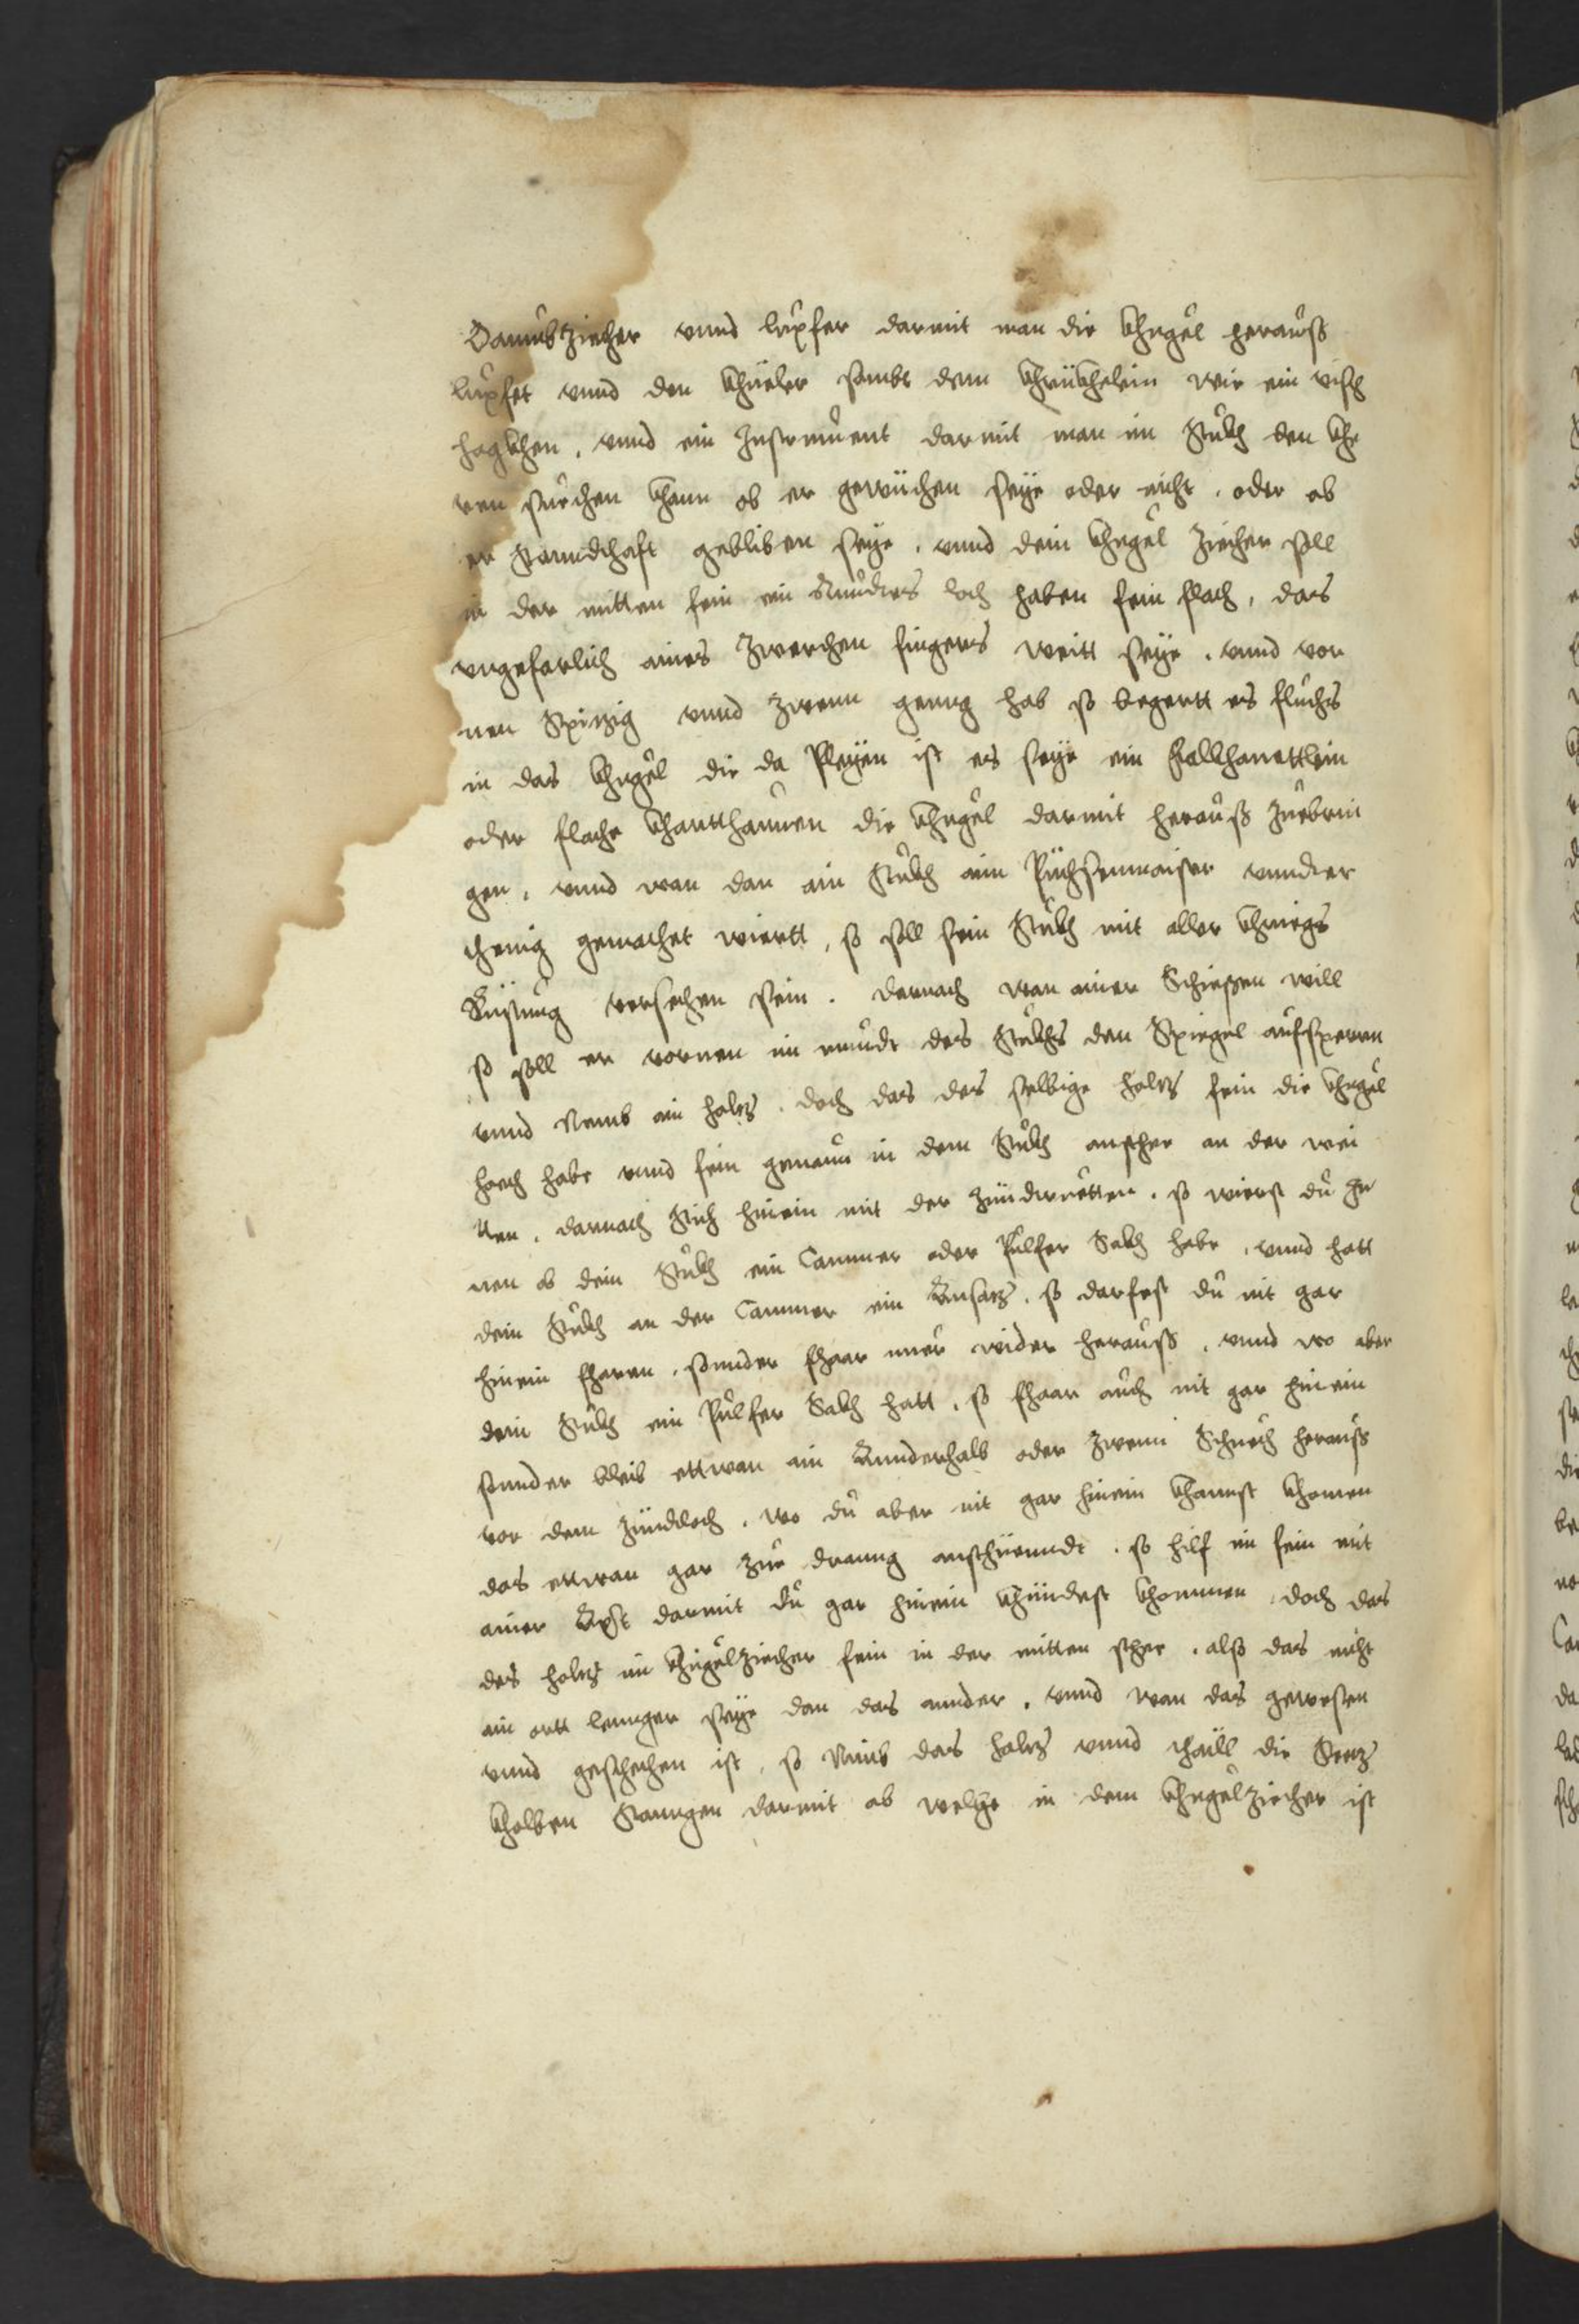 Daumbziecher vnnd lupfer darmit man die khugel herauß
lupfet vnnd den khüeler sambt dem khrükhelein wie ein visch
hagkhen, vnnd ein Instrument darmit man im Stukh den khe
ren suechen khann ob er gewüchen seÿe oder nicht, oder ob
er Stanndthaft gebliben seÿe, vnnd dein khugel ziecher soll
in der mitten fein ein Rundes loch haben fein flach, das
vngefarlich aines zwerchen fingers weitt seÿe, vnnd vor
nen Spitzig vnnd zwenn geng hab so begertt es fluchs
in das khugel die da Pleÿen ist es seÿe ein falkhanettlein
oder flache khartthaunen die khugel darmit herauß zuebrin
gen, vnnd wan dan ain Stukh aim Püchsenmaister vnnder
thenig gemachet wiertt, so soll sein Stukh mit aller khriegs
Rüstung versechen sein. darnach wan ainer Schießen will
so soll er vornen im mundt des Stukhs den Spiegel aufsperen
vnnd Nemb ain holtz, doch das das selbige holtz fein die khugel
hoech habe vnnd fein genaun in dem Stukh anstehe an der wei
tten, darnach Stich hinein mit der zünderuetten, so wierst du Ju
nen ob dein Stukh ein Cammer oder Pulfer Sakh habe, vnnd hatt
dein Stukh an der Cammer ein Ansatz, so darfest du nit gar
hinein fharen, sonnder fhaar nuer wider herauß, vnnd wo aber
dein Stukh ein Pulfer Sakh hatt, so fhaar auch nit gar hinein
sonnder bleib ettwan ain Annderhalb oder zwenn Schuech herauß
vor dem zündtloch, wo du aber nit gar hinein khannst khomen
das ettwan gar zue dranng anstüenndt, so hilf im fein mit
ainer Axst darmit du gar hinein khündest khommen, doch das
das holtz im khugelziecher fein in der mitten stehe, alß das nicht
ain ortt lennger seÿe dan das annder, vnnd wan das gewesen
vnnd geschechen ist, so Nimb das holtz vnnd thaill die Setz
kholben Stanngen darmit ab welche in dem khugelziecher ist